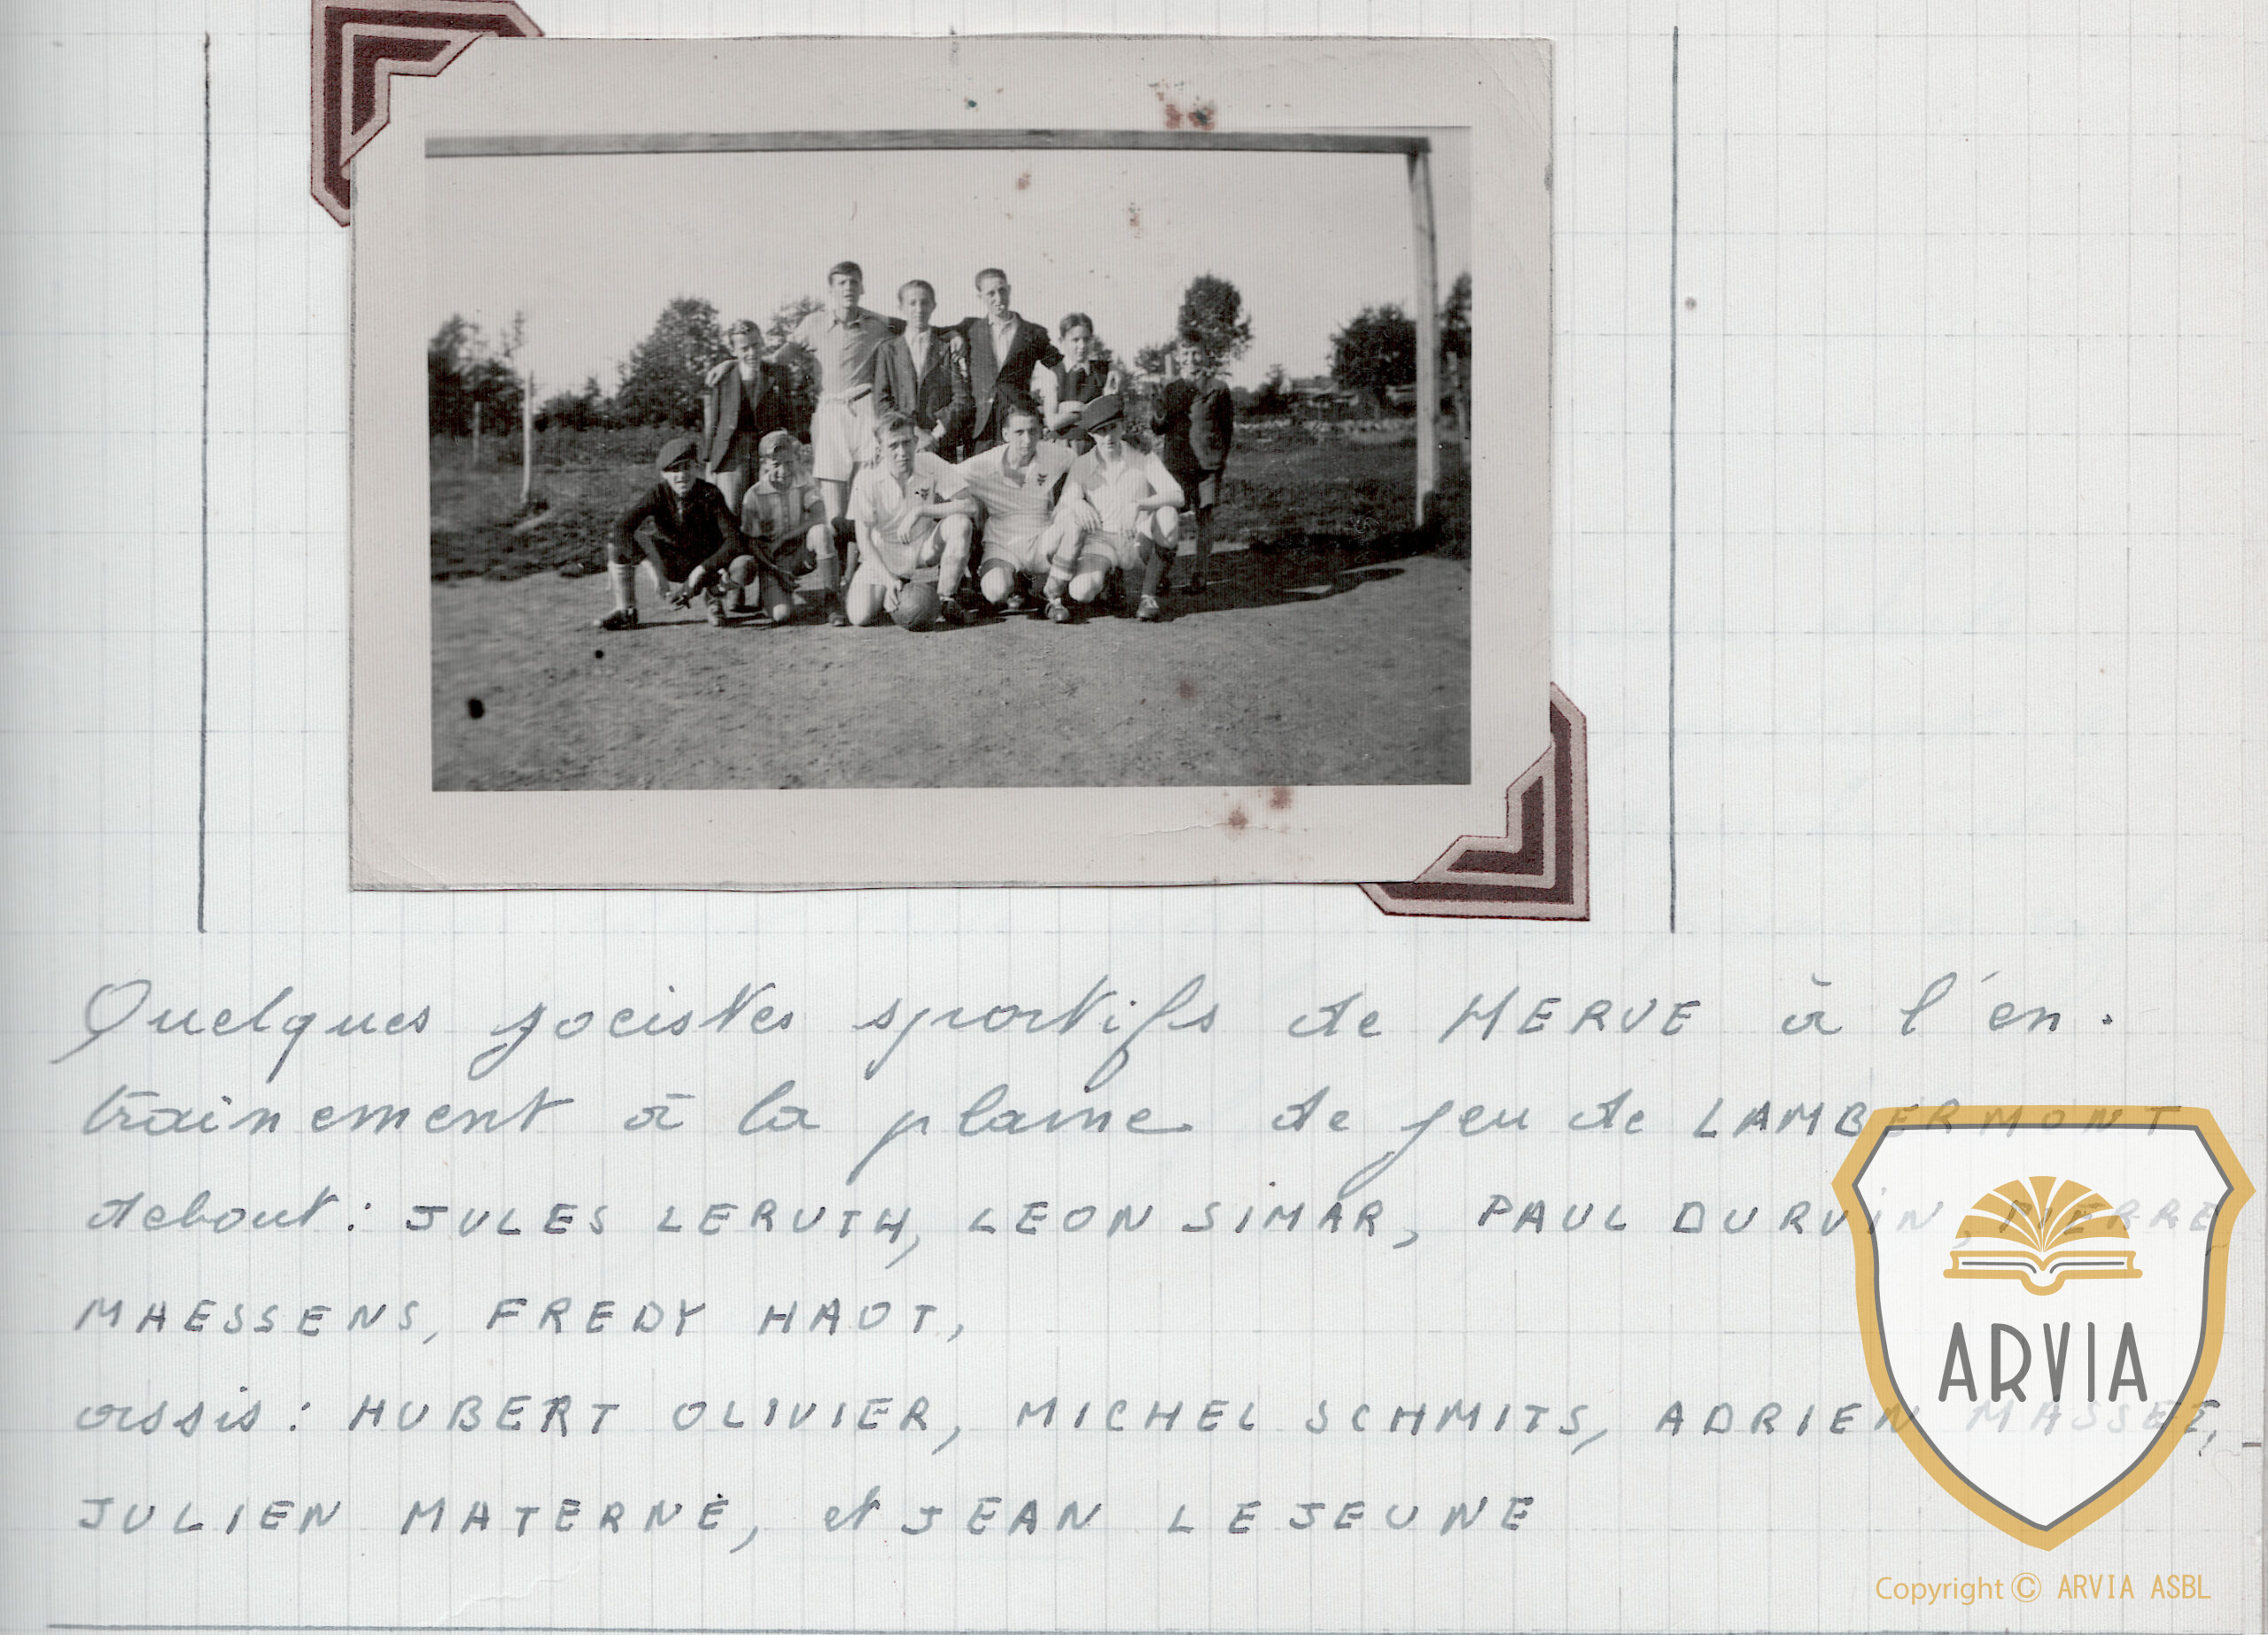 Quelques jocistes sportifs de HERVE à l'en-
trainement à la plaine de jeu de LAMBERMONT
debout : JULES LERUTH, LEON SIMAR, PAUL DURVIN, PIERRE
MAESSENS, FREDY HAOT,
assis : HUBERT OLIVIER, MICHEL SCHMITS, ADRIEN
JULIEN MATERNE, et JEAN LEJEUNE
ARVIA
Copyright © ARVIA ASBL